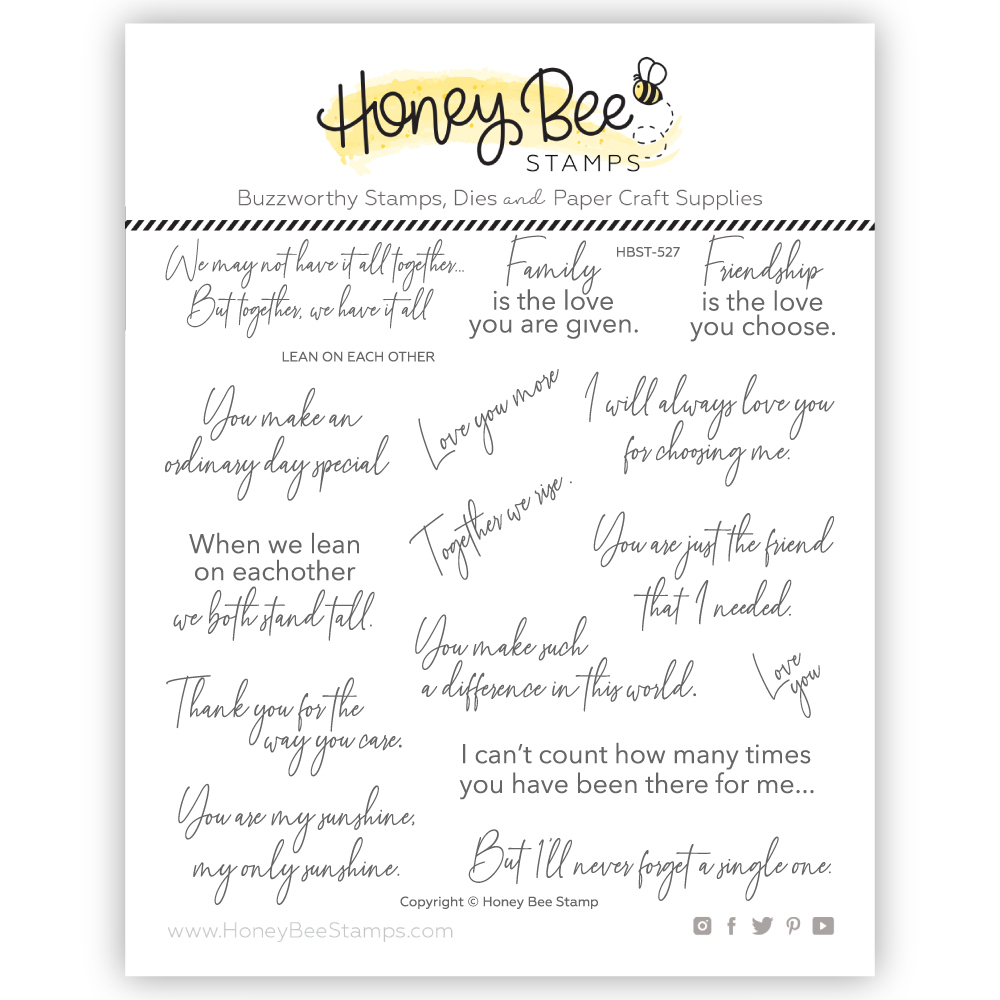 Honey Bee
STAMPS
Buzzworthy Stamps, Dies and Paper Craft Supplies
We may not have it all together...
But together, we have it all
LEAN ON EACH OTHER
Family
is the love
you are given.
HBST-527
Friendship
is the love
you choose.
You make an
ordinary day special
Love you more
I will always love you
for choosing me.
Together we rise.
When we lean
on eachother
we both stand tall.
You are just the friend
that I needed.
You make such
a difference in this world.
Love
you
Thank you for the
way you care.
I can't count how many times
you have been there for me...
You are my sunshine,
my only sunshine.
But I'll never forget a single one.
Copyright © Honey Bee Stamp
www.HoneyBeeStamps.com